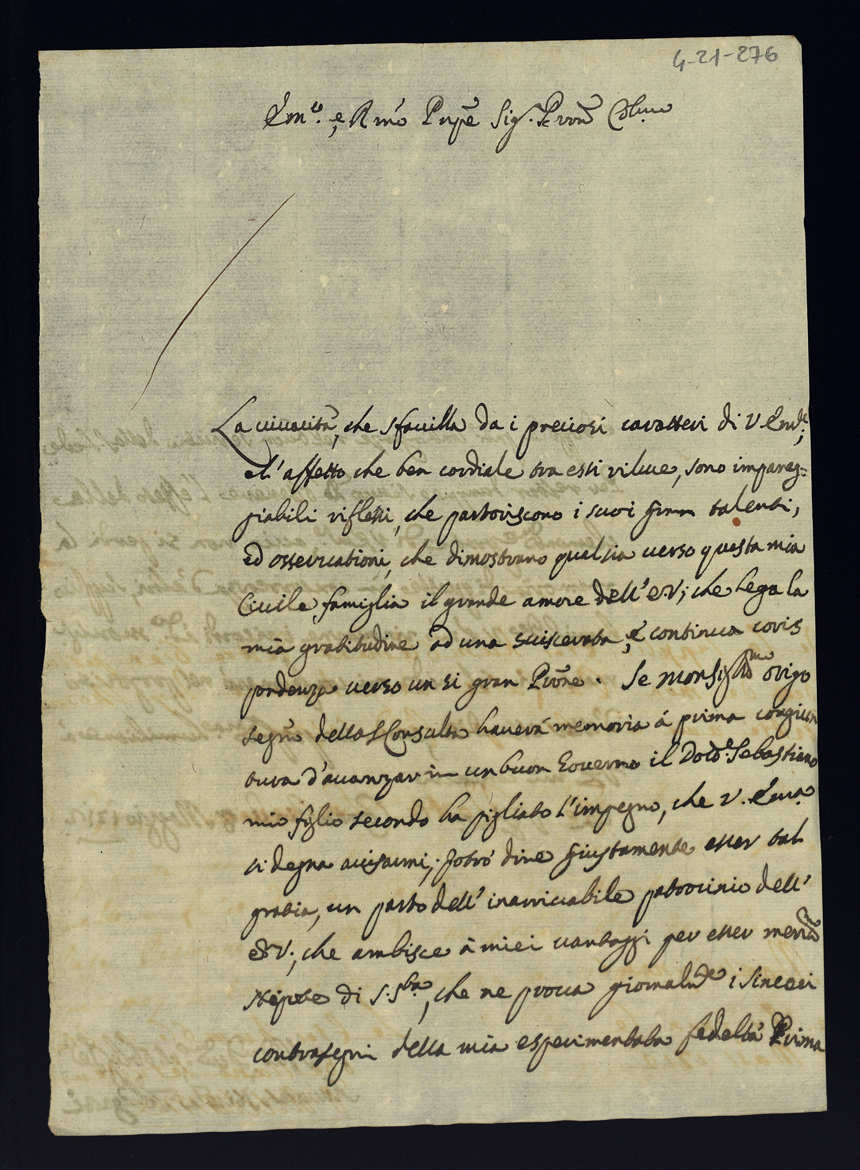 4-21-276
Em.º e Rmo Pnpe Sig.r Prone Colmo
La viuacità, che sfauilla da i preciosi caratteri di V. Emza,
e l'affetto che ben cordiale tra essi riluce, sono impareg=
giabili riflessi, che partoriscono i suoi gran talenti,
ed osseruationi, che dimostrano qual sia uerso questa mia
Ciuile famiglia il grande amore dell'E.V; che lega la
mia gratitudine ad una suiscerata, e continua coris
pondenza uerso un si gran Prone. Se Monsig.r Rmo Origo
Segrio della S. Consulta hauerà memoria à prima congiun
tura d'auanzar in un buon Gouerno il Dotd.e Sebastiano
mio figlio secondo ha pigliato l'impegno, che V. Emza
si degna auisarmi, potrò dire giustamente esser tal
gratia, un parto dell' inarriuabile patrocinio dell'
E.V; che ambisce à miei uantaggi per esser
Nipote di S. Stà, che ne proua giornalmte i sinceri
contrasegni della mia esperimentata fedeltà Prima